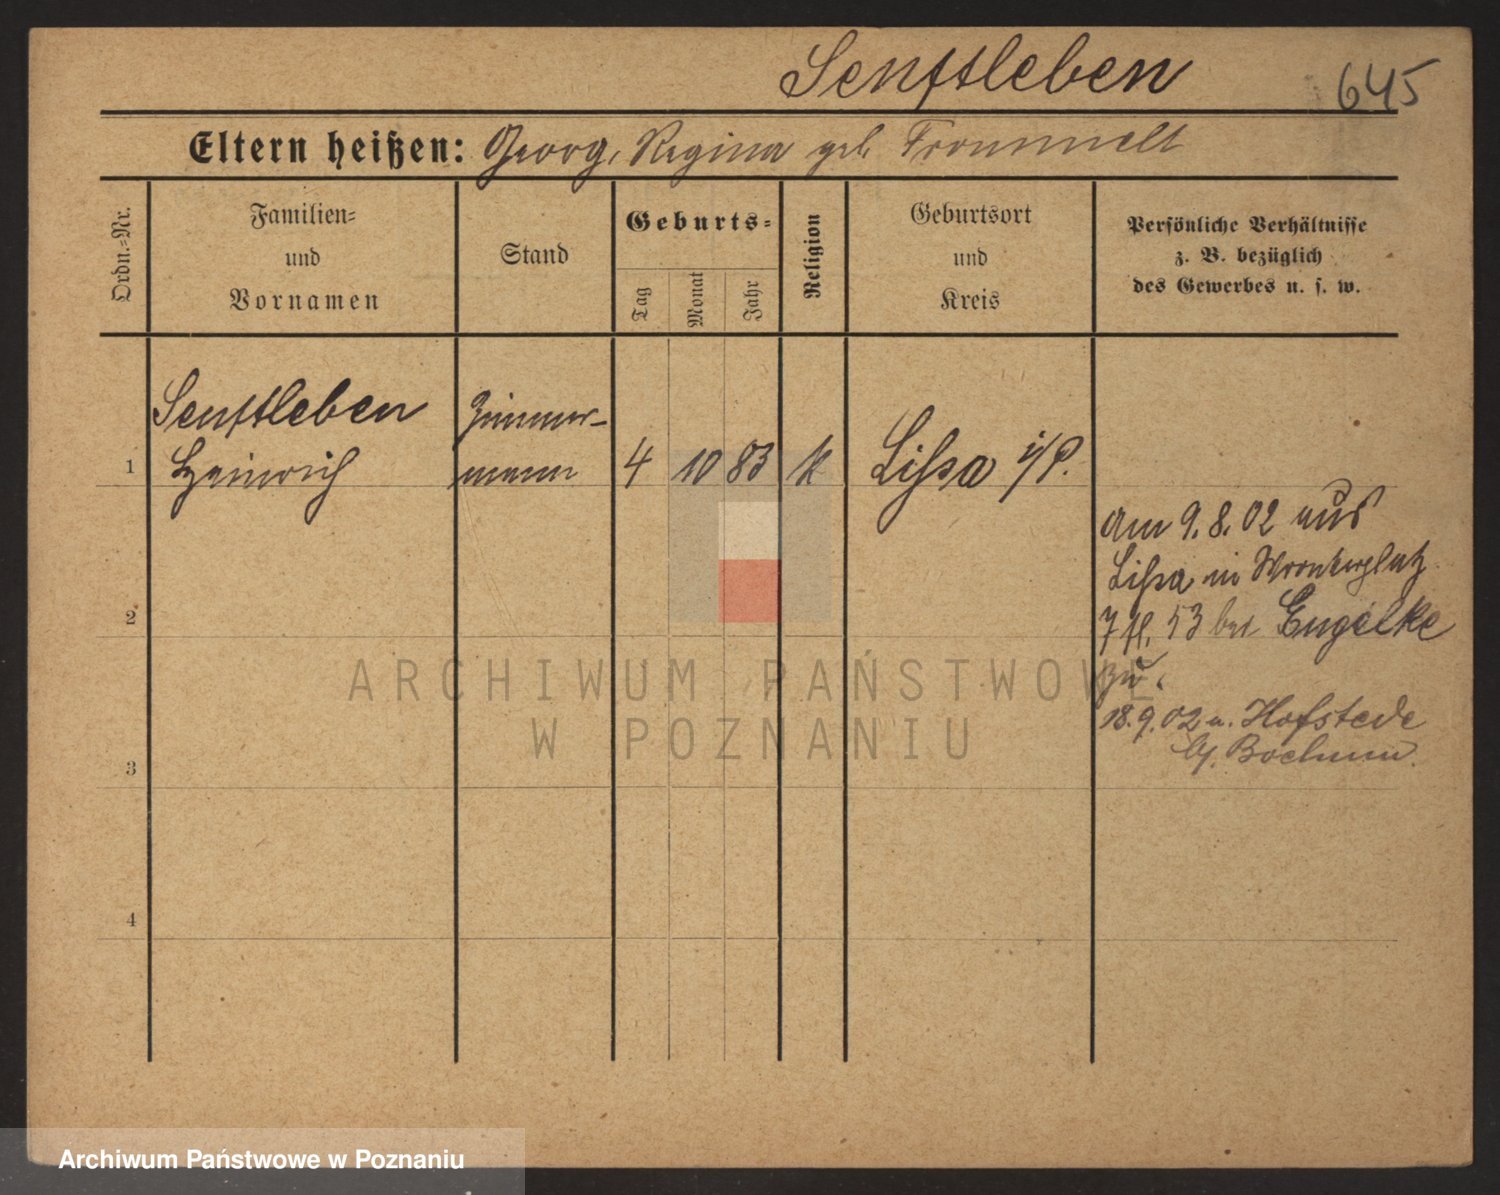 Senftleben
645
Eltern heißen: Georg, Regina geb. Frommelt
Ordn.=Nr.
Familien=
und
Vornamen
Stand
Geburts=
Tag
Monat
Jahr
Religion
Geburtsort
und
Kreis
Persönliche Verhältnisse
z. B. bezüglich
des Gewerbes u. s. w.
Senftleben
Heinrich
Zimmer-
mann
1
4
10
83
k
Lissa i/P.
am 9.8.02 aus
Lissa in Wronkerplatz
7 II. 53 bei Engelke
zu.
18.9.02 n. Hofstede
b/. Bochum.
2
3
4
ARCHIWUM PAŃSTWOWE
W POZNANIU
Archiwum Państwowe w Poznaniu